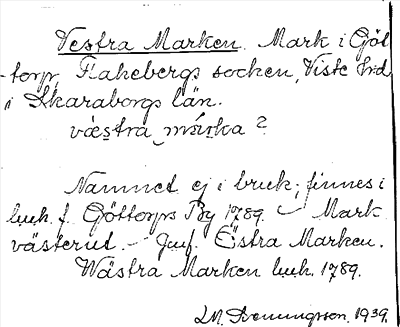 Vestra Marken. Mark i Göt-
torp, Flakebergs socken, Viste hrd
i Skaraborgs län.
västra marka?
Namnet ej i bruk; finnes i
luch. f. Göttorps By 1789. – Mark
västerut. – Jmf. Östra Marken.
Wästra Marken luch. 1789.
1939.